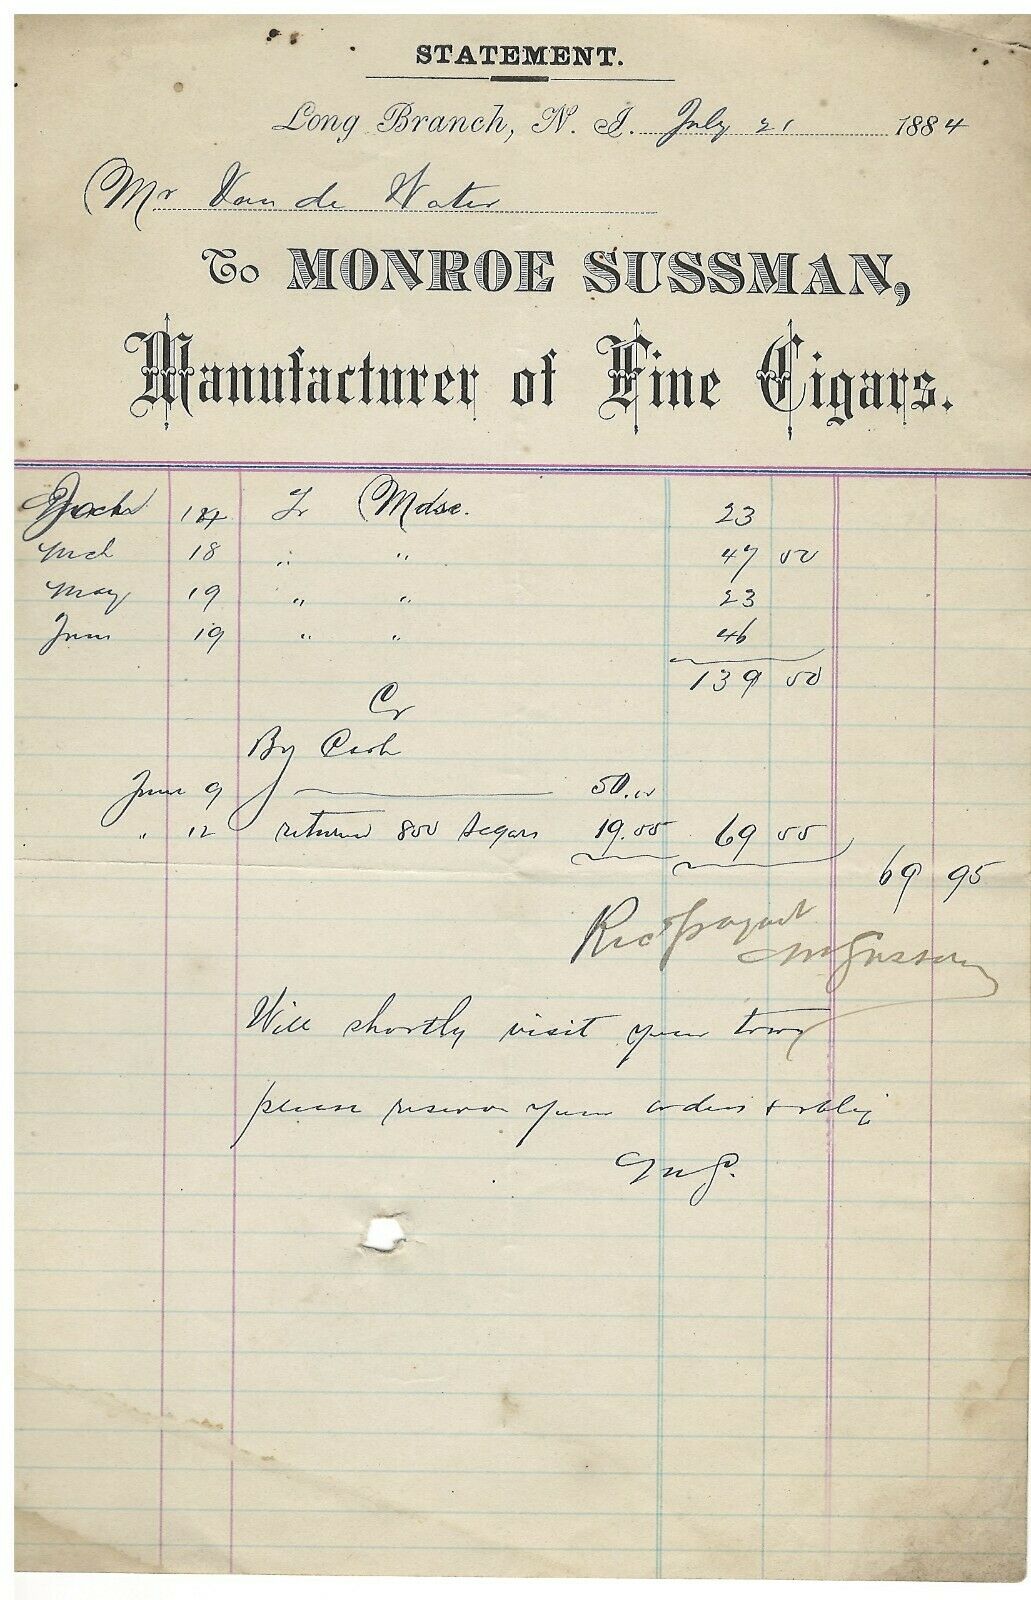 STATEMENT.
Long Branch, N. J. July 21 1884
Mr Van de Water
To MONROE SUSSMAN,
Manufacturer of Fine Cigars.
14 To Mdse. 23
Mch 18 " " 47 00
May 19 " " 23
June 19 " " 46
139 00
Cr
By Cash
June 9 50.00
" 12 returned 800 segars 19.00 69 00
69 95
Rec'd payment
M Sussman
Will shortly visit your town
please reserve your orders & oblige
M S.